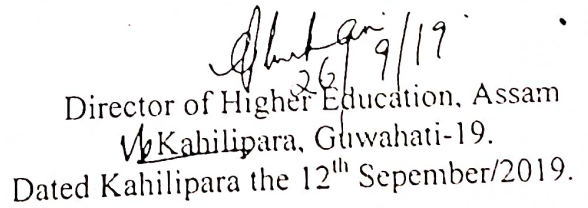 26/9/19
Director of Higher Education, Assam
Kahilipara, Guwahati-19.
Dated Kahilipara the 12th Sepember/2019.